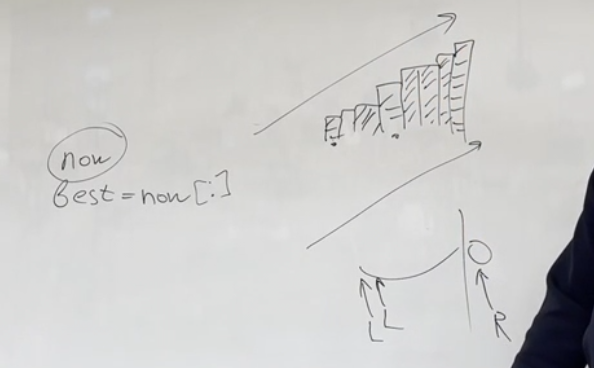 now
best = now[:]
L L
R